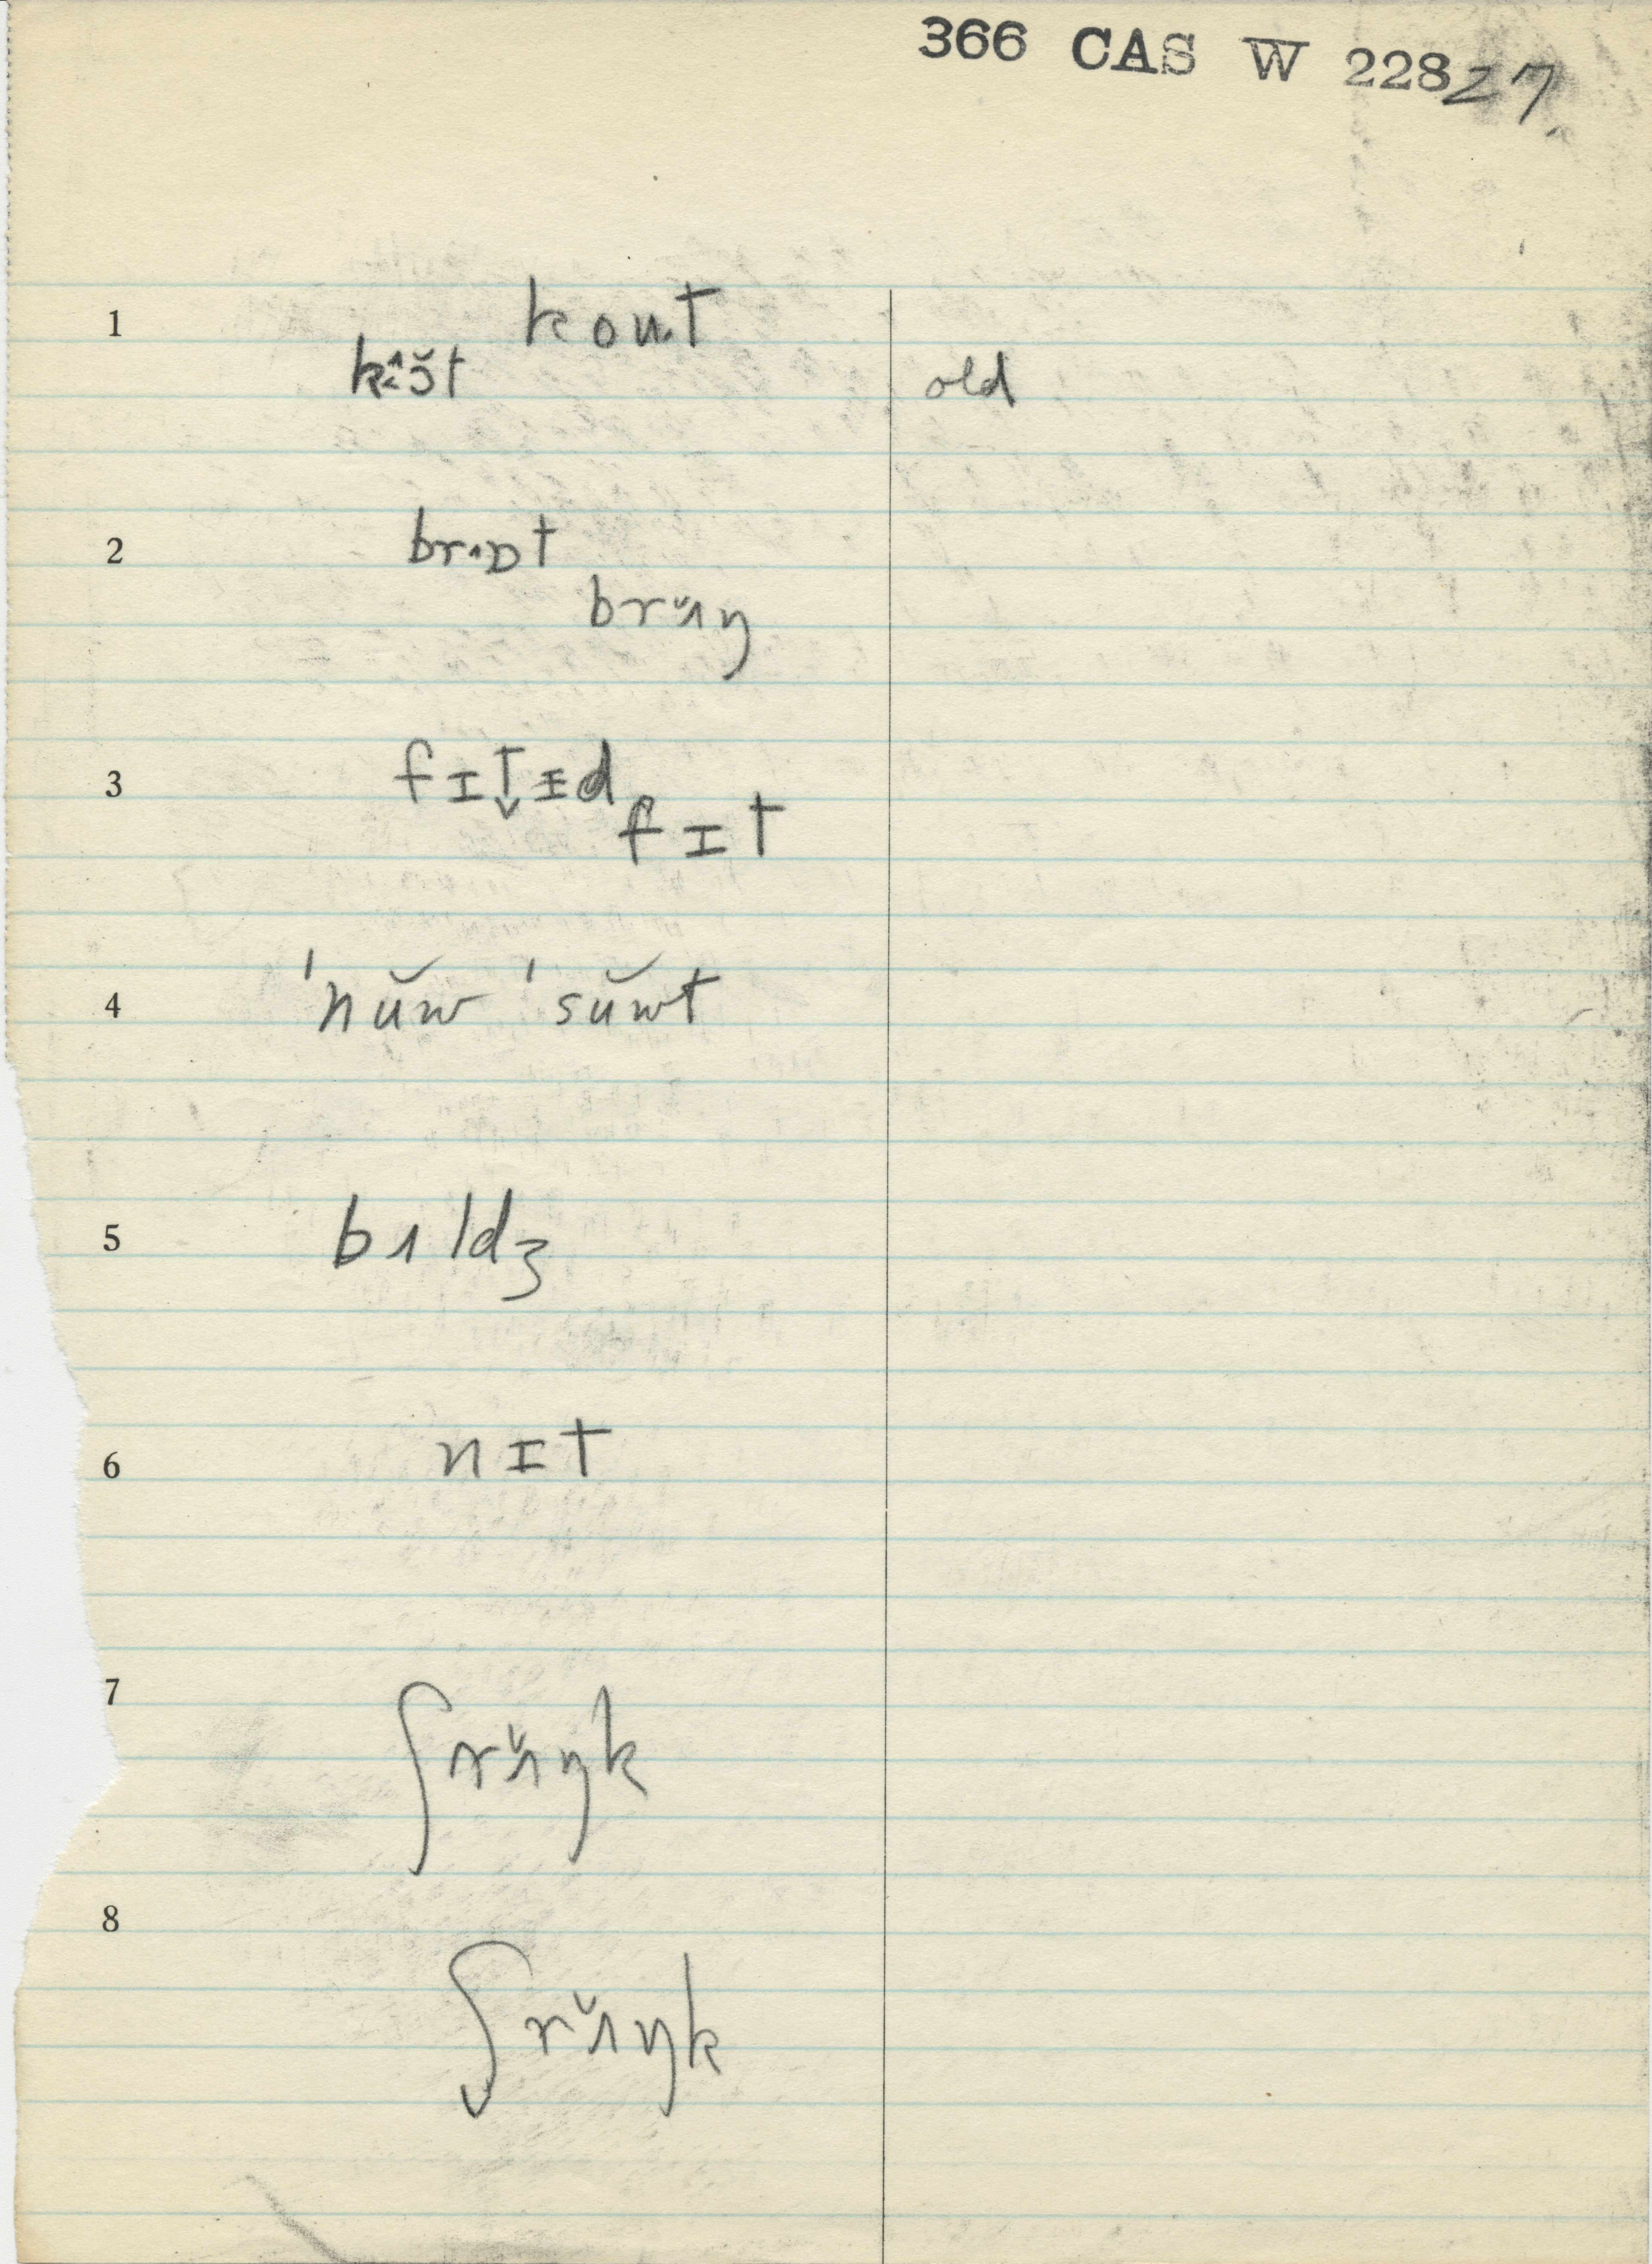 366 CAS W 228 27
1 koʊt
old
2 brɒt
brɨ̆ŋ
3 fɪt̬ɪd
fɪt
4 ˈnŭw ˈsŭwt
5 bɨldʒ
6 nɪt
7 ʃrɨ̆ŋk
8 ʃ̬rɨ̆ŋk